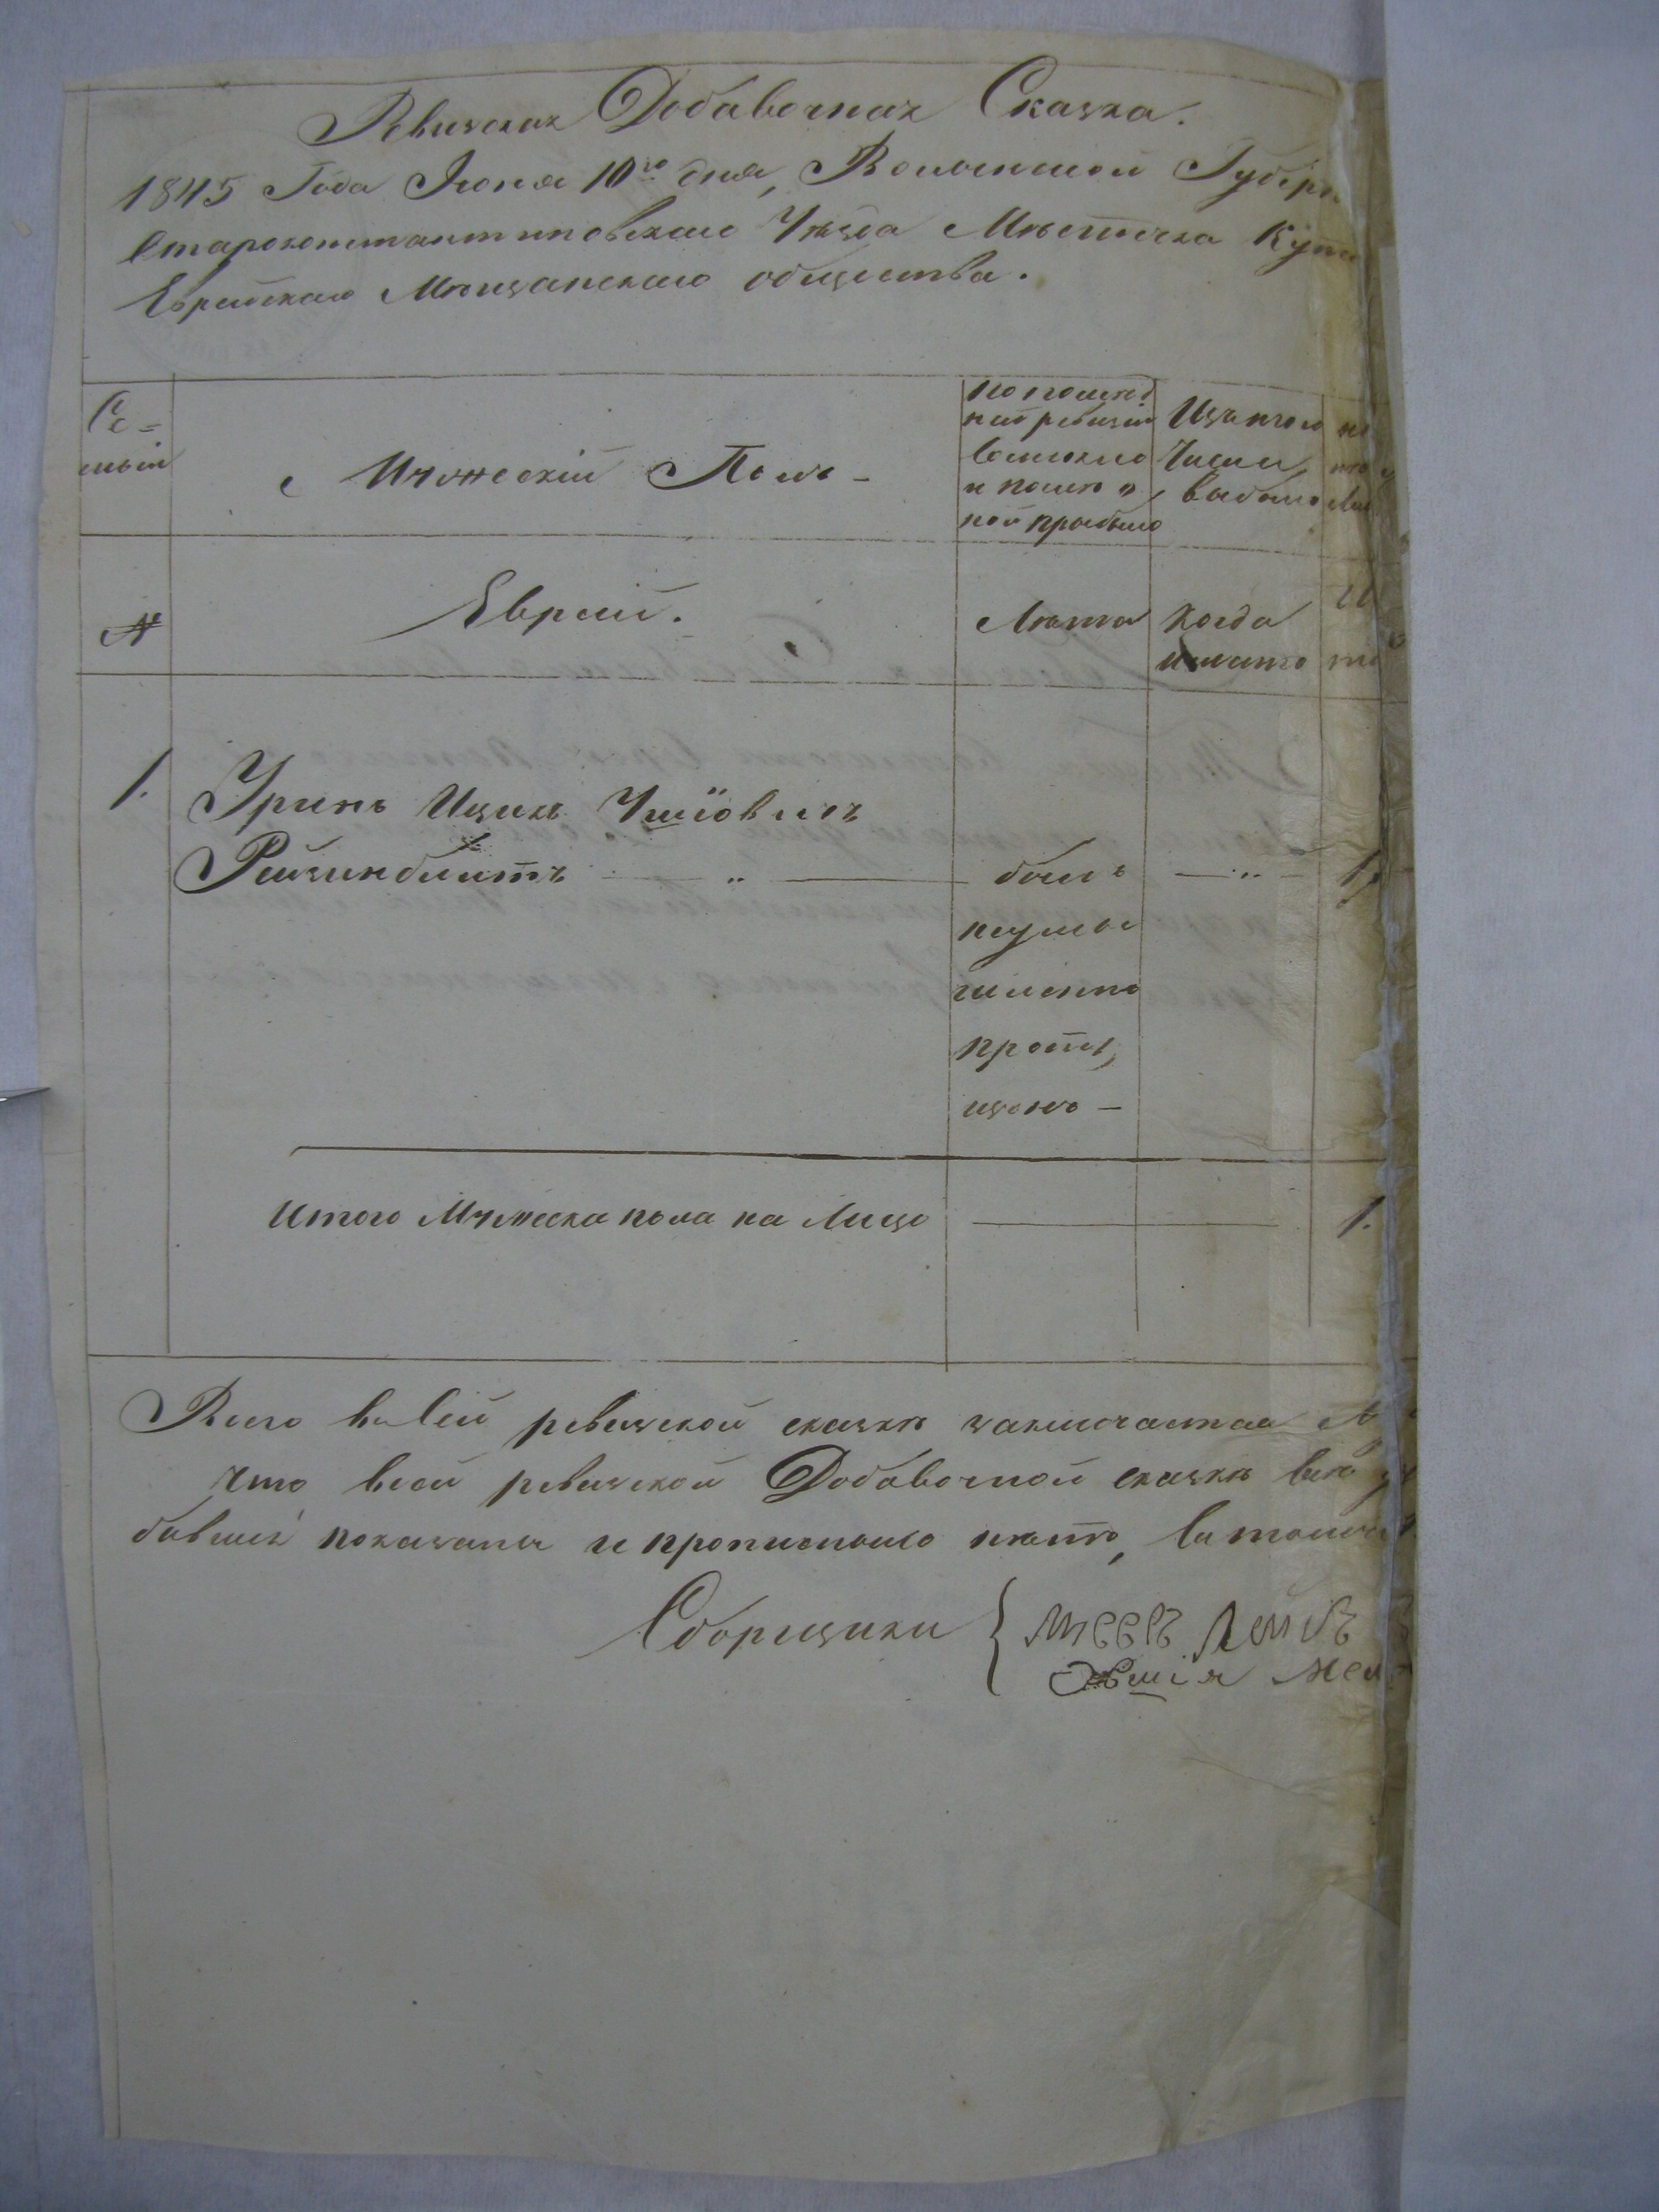 Ревизская Добавочная Сказка.
1845 Года Июня 10го дня, Волынской Губер
Староконстантиновского Уѣзда Мѣстечка
Еврейскаго Мѣщанскаго общества.
Се=
мьи
Мужескій Полъ -
по послѣд
ней ревизіи
состояло
и послѣ о
ной прибыло
Изъ того
Числа
выбыло
№
Евреи.
Лѣта
когда
имянно
1.
Уринъ Ицикъ
— „ —
былъ
— „ —
1.
неумы
шленно
пропу
щенъ —
Итого Мужеска пола на Лицо
1.
Всего въ сей ревизской сказкѣ заключается
что въ сей ревизской Добавочной сказкѣ всѣ
показаны и прописныхъ нѣтъ, въ томъ
Сборщики { Лейбъ